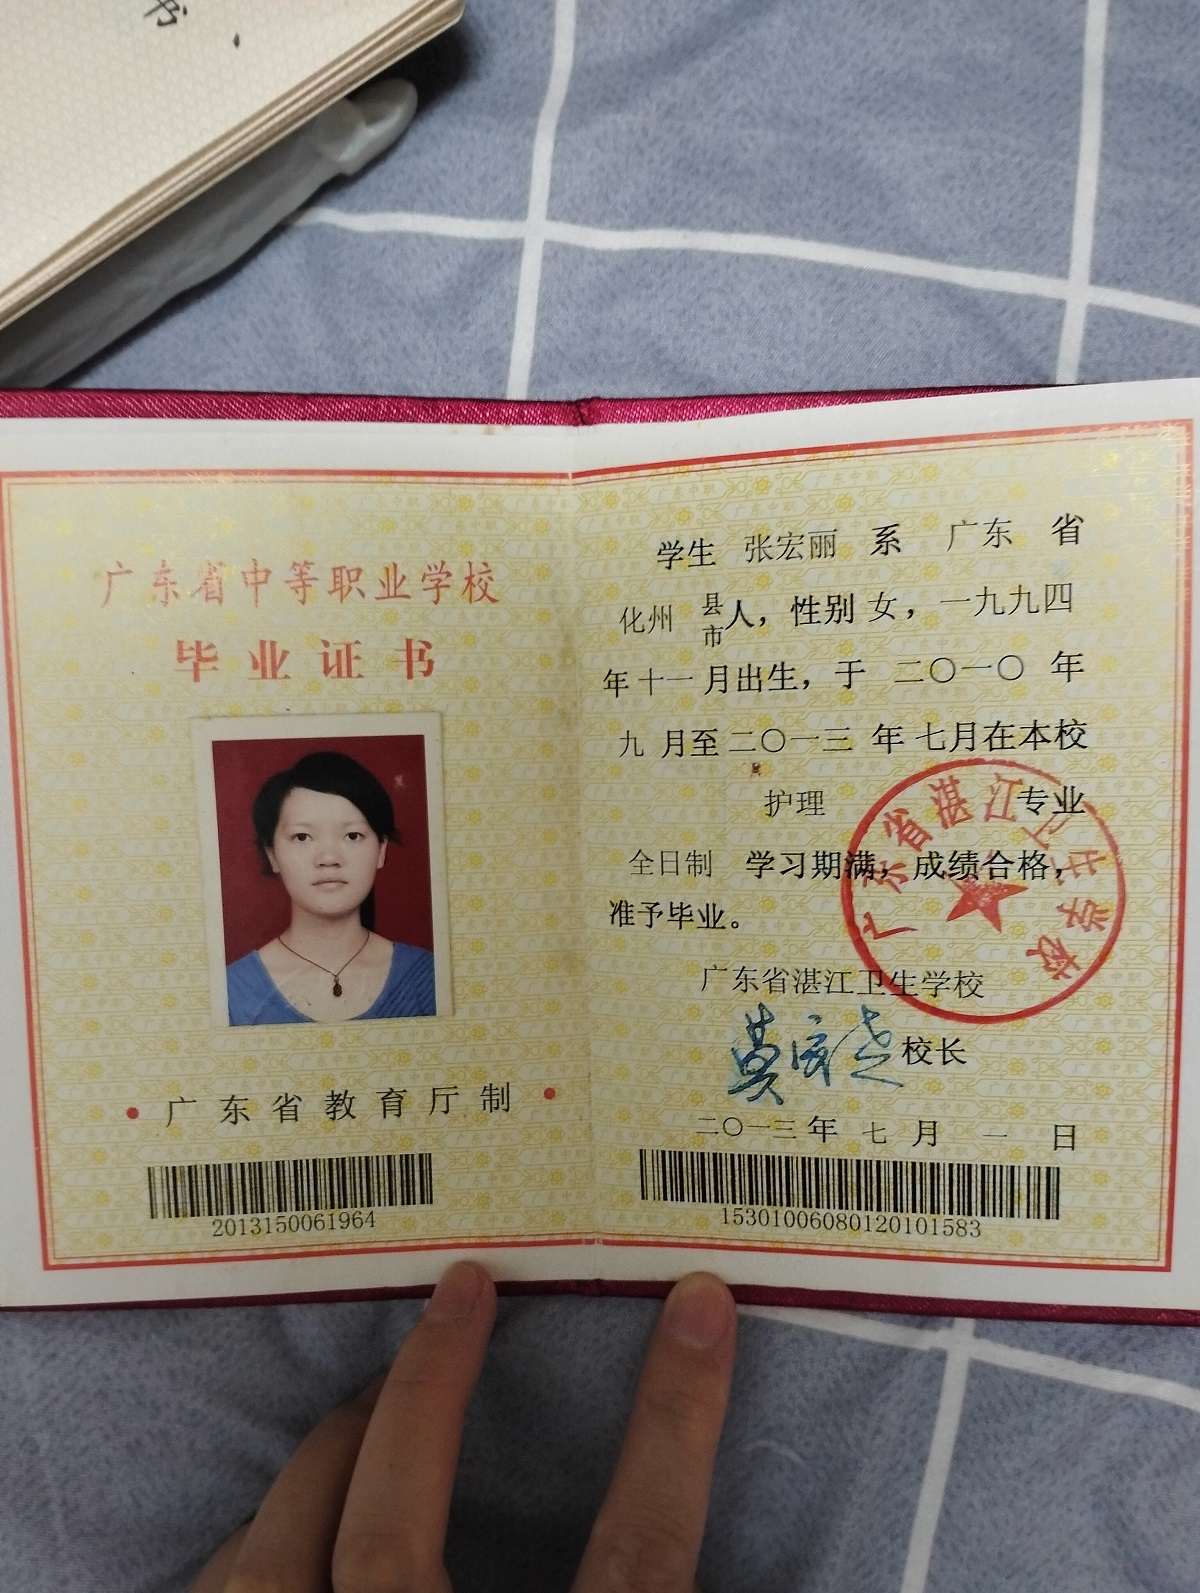 书
广东省中等职业学校
毕业证书
广东省教育厅制
2013150061964
学生 张宏丽 系 广东 省
化州 县市人，性别 女，一九九四
年十一月出生，于 二〇一〇 年
九 月至二〇一三 年七月在本校
护理 专业
全日制 学习期满，成绩合格，
准予毕业。
广东省湛江卫生学校
广东省湛江卫生学校
校长
二〇一三年 七 月 一 日
15301006080120101583